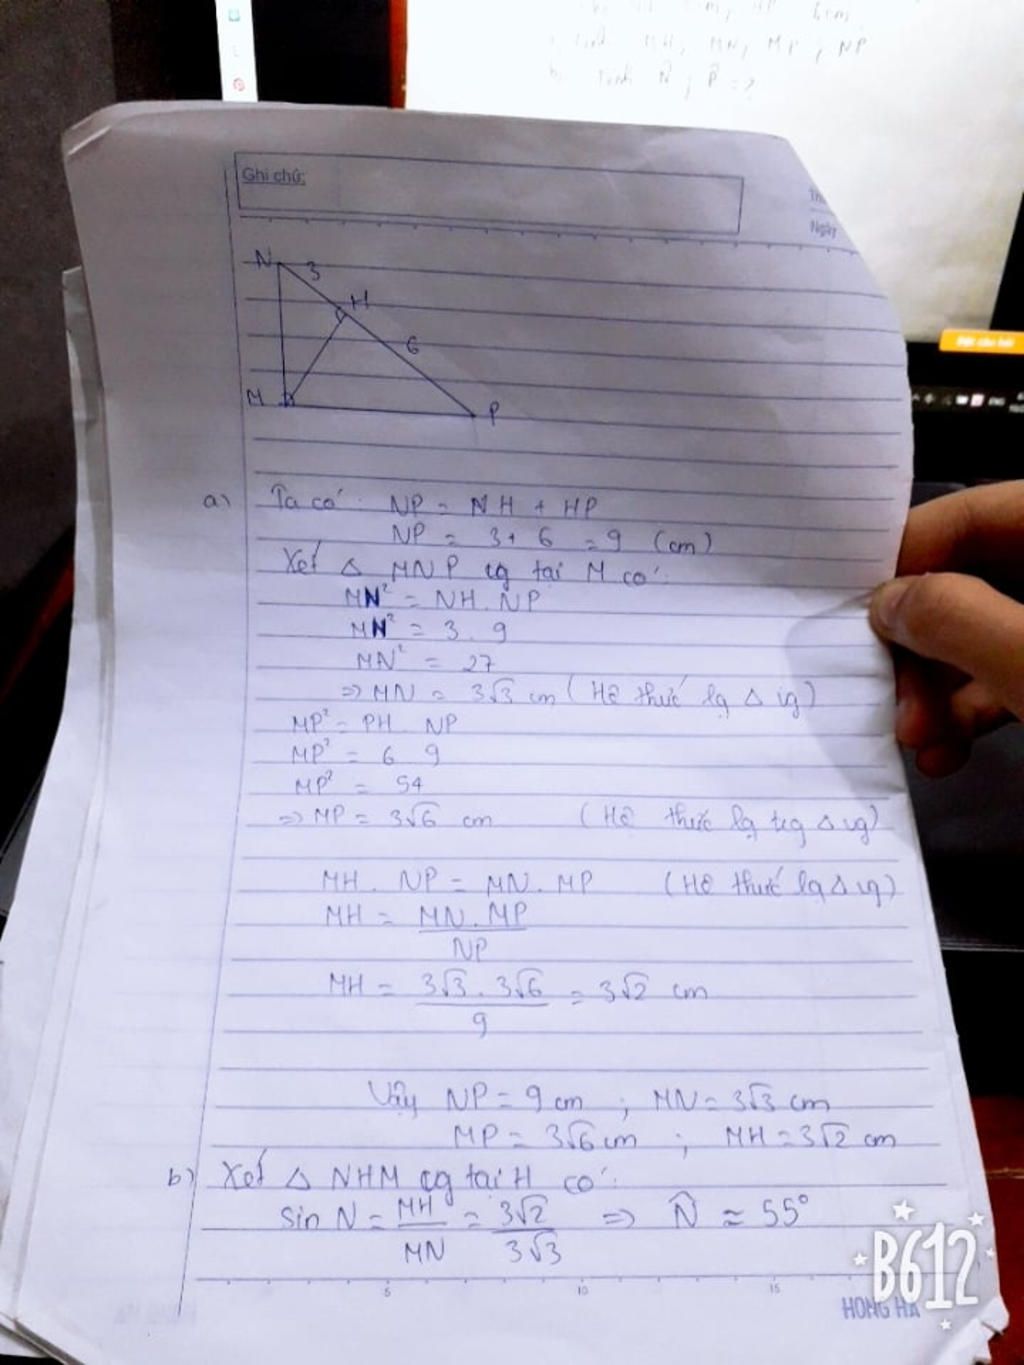 tính MH, MN, MP, NP
tính N̂, P̂ = ?
Ghi chú:
Ngày
N 3
H
6
M
P
a) Ta có: NP = NH + HP
NP = 3 + 6 = 9 (cm)
Xét Δ MNP vg tại M có:
MN² = NH . NP
MN² = 3 . 9
MN² = 27
⇒ MN = 3√3 cm (Hệ thức lg Δ vg)
MP² = PH . NP
MP² = 6 9
MP² = 54
⇒ MP = 3√6 cm (Hệ thức lg trg Δ vg)
MH . NP = MN . MP (Hệ thức lg Δ vg)
MH = MN . MP
NP
MH = 3√3 . 3√6 = 3√2 cm
9
Vậy NP = 9 cm ; MN = 3√3 cm
MP = 3√6 cm ; MH = 3√2 cm
b) Xét Δ NHM vg tại H có:
sin N = MH = 3√2 ⇒ N̂ ≈ 55°
MN 3√3
5 10 15
B612
HONG HA